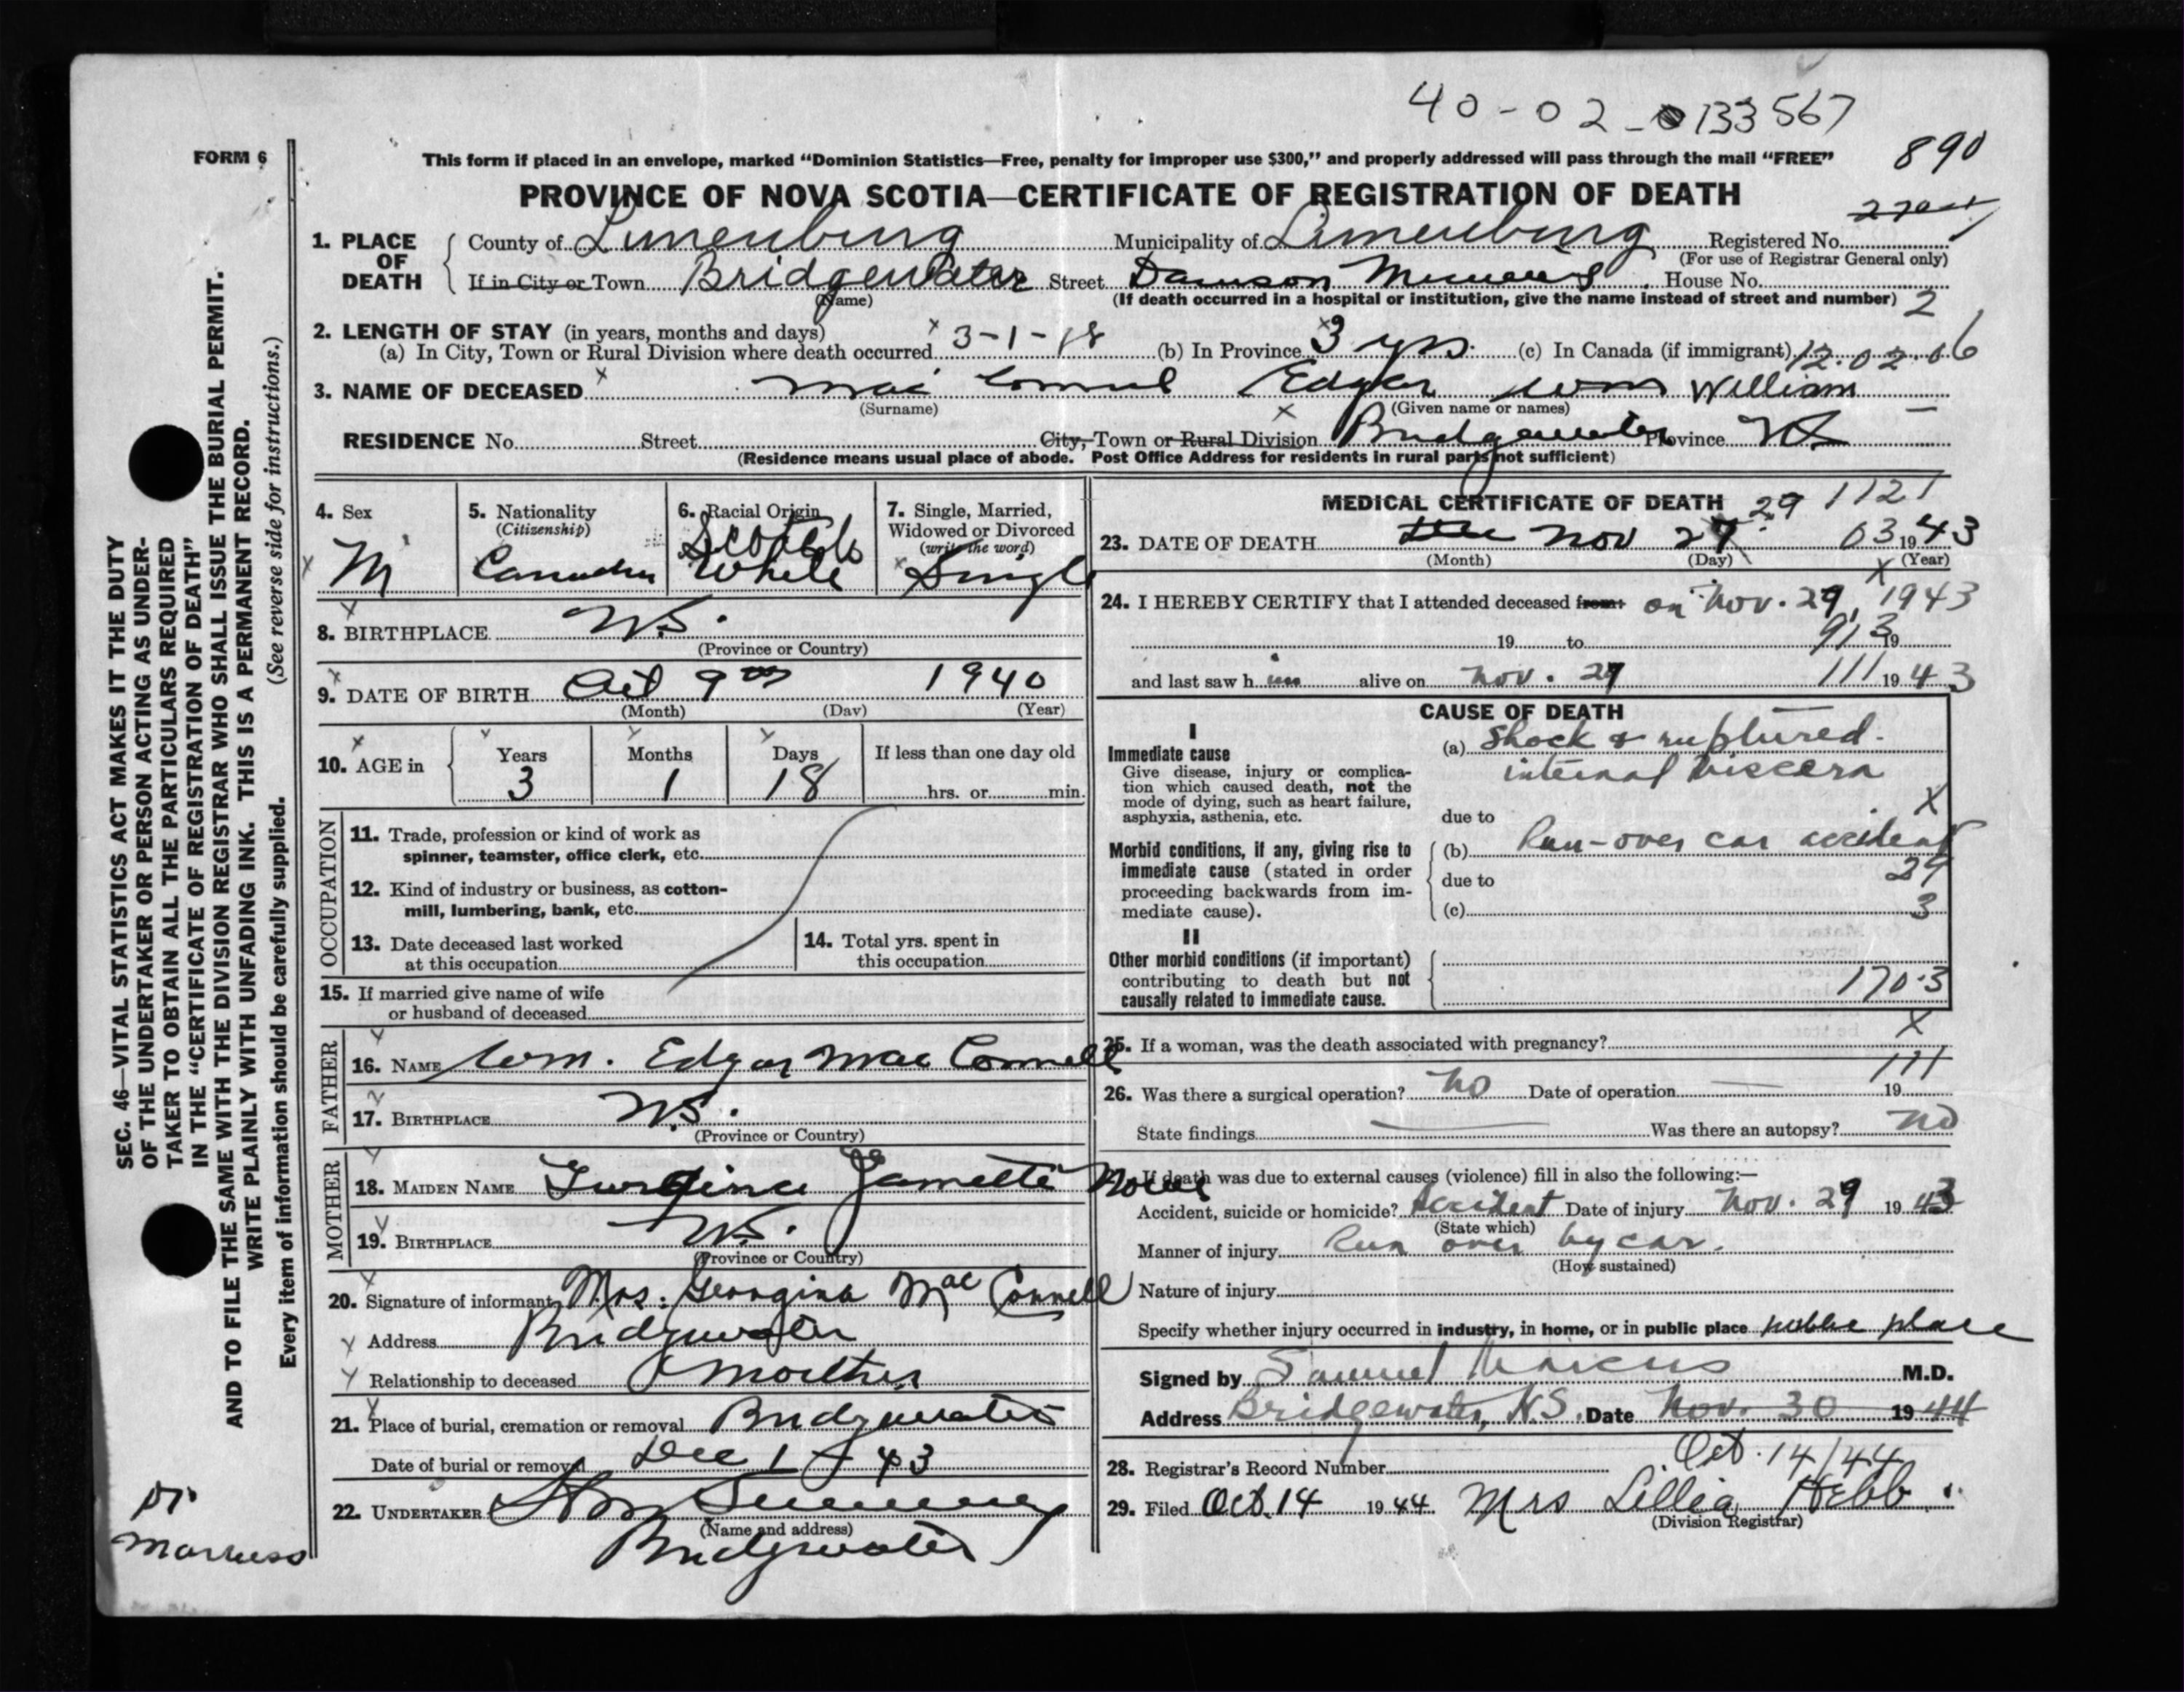 40-02-0133567
890
FORM 6
This form if placed in an envelope, marked “Dominion Statistics—Free, penalty for improper use $300,” and properly addressed will pass through the mail “FREE”
PROVINCE OF NOVA SCOTIA—CERTIFICATE OF REGISTRATION OF DEATH
1. PLACE OF DEATH
County of Lunenburg Municipality of Lunenburg Registered No.
(For use of Registrar General only)
If in City or Town Bridgewater Street Dawson House No.
(Name) (If death occurred in a hospital or institution, give the name instead of street and number) 2
2. LENGTH OF STAY (in years, months and days)
(a) In City, Town or Rural Division where death occurred 3-1-18 (b) In Province 3 yrs. (c) In Canada (if immigrant) 12.02.06
3. NAME OF DECEASED Mac Connell Edgar Wm William
(Surname) (Given name or names)
RESIDENCE No. Street City, Town or Rural Division Bridgewater Province NS
(Residence means usual place of abode. Post Office Address for residents in rural parts not sufficient)
4. Sex
M
5. Nationality
(Citizenship)
Canadian
6. Racial Origin
Scotch
White
7. Single, Married,
Widowed or Divorced
(write the word)
Single
8. BIRTHPLACE N.S.
(Province or Country)
9. DATE OF BIRTH Oct 9th 1940
(Month) (Day) (Year)
10. AGE in
Years Months Days If less than one day old
3 1 18 hrs. or min.
OCCUPATION
11. Trade, profession or kind of work as
spinner, teamster, office clerk, etc.
12. Kind of industry or business, as cotton-
mill, lumbering, bank, etc.
13. Date deceased last worked
at this occupation
14. Total yrs. spent in
this occupation
15. If married give name of wife
or husband of deceased
FATHER
16. NAME Wm. Edgar Mac Connell
17. BIRTHPLACE N.S.
(Province or Country)
MOTHER
18. MAIDEN NAME
19. BIRTHPLACE N.S.
(Province or Country)
20. Signature of informant Mrs. Georgina Mac Connell
Address Bridgewater
Relationship to deceased Mother
21. Place of burial, cremation or removal Bridgewater
Date of burial or removal Dec 1 43
22. UNDERTAKER
(Name and address)
Bridgewater
MEDICAL CERTIFICATE OF DEATH
29 1121
23. DATE OF DEATH Nov 27 03 1943
(Month) (Day) (Year)
24. I HEREBY CERTIFY that I attended deceased from: on Nov. 29, 1943
19 to 913 19
and last saw h im alive on Nov. 29 111 1943
CAUSE OF DEATH
I
Immediate cause
Give disease, injury or complica-
tion which caused death, not the
mode of dying, such as heart failure,
asphyxia, asthenia, etc.
(a) Shock & ruptured
internal viscera
due to
Morbid conditions, if any, giving rise to
immediate cause (stated in order
proceeding backwards from im-
mediate cause).
(b) Run-over car accident
29
due to
(c) 3
II
Other morbid conditions (if important)
contributing to death but not
causally related to immediate cause.
170.3
25. If a woman, was the death associated with pregnancy?
111
26. Was there a surgical operation? no Date of operation 19
State findings Was there an autopsy? no
If death was due to external causes (violence) fill in also the following:—
Accident, suicide or homicide? Accident Date of injury Nov. 29 1943
(State which)
Manner of injury Run over by car.
(How sustained)
Nature of injury
Specify whether injury occurred in industry, in home, or in public place public place
Signed by Samuel Marcus M.D.
Address Bridgewater, N.S. Date Nov. 30 1944
28. Registrar's Record Number Oct. 14/44
29. Filed Oct. 14 1944 Mrs Lillia Hebb
(Division Registrar)
SEC. 46—VITAL STATISTICS ACT MAKES IT THE DUTY
OF THE UNDERTAKER OR PERSON ACTING AS UNDER-
TAKER TO OBTAIN ALL THE PARTICULARS REQUIRED
IN THE “CERTIFICATE OF REGISTRATION OF DEATH”
AND TO FILE THE SAME WITH THE DIVISION REGISTRAR WHO SHALL ISSUE THE BURIAL PERMIT.
WRITE PLAINLY WITH UNFADING INK. THIS IS A PERMANENT RECORD.
Every item of information should be carefully supplied. (See reverse side for instructions.)